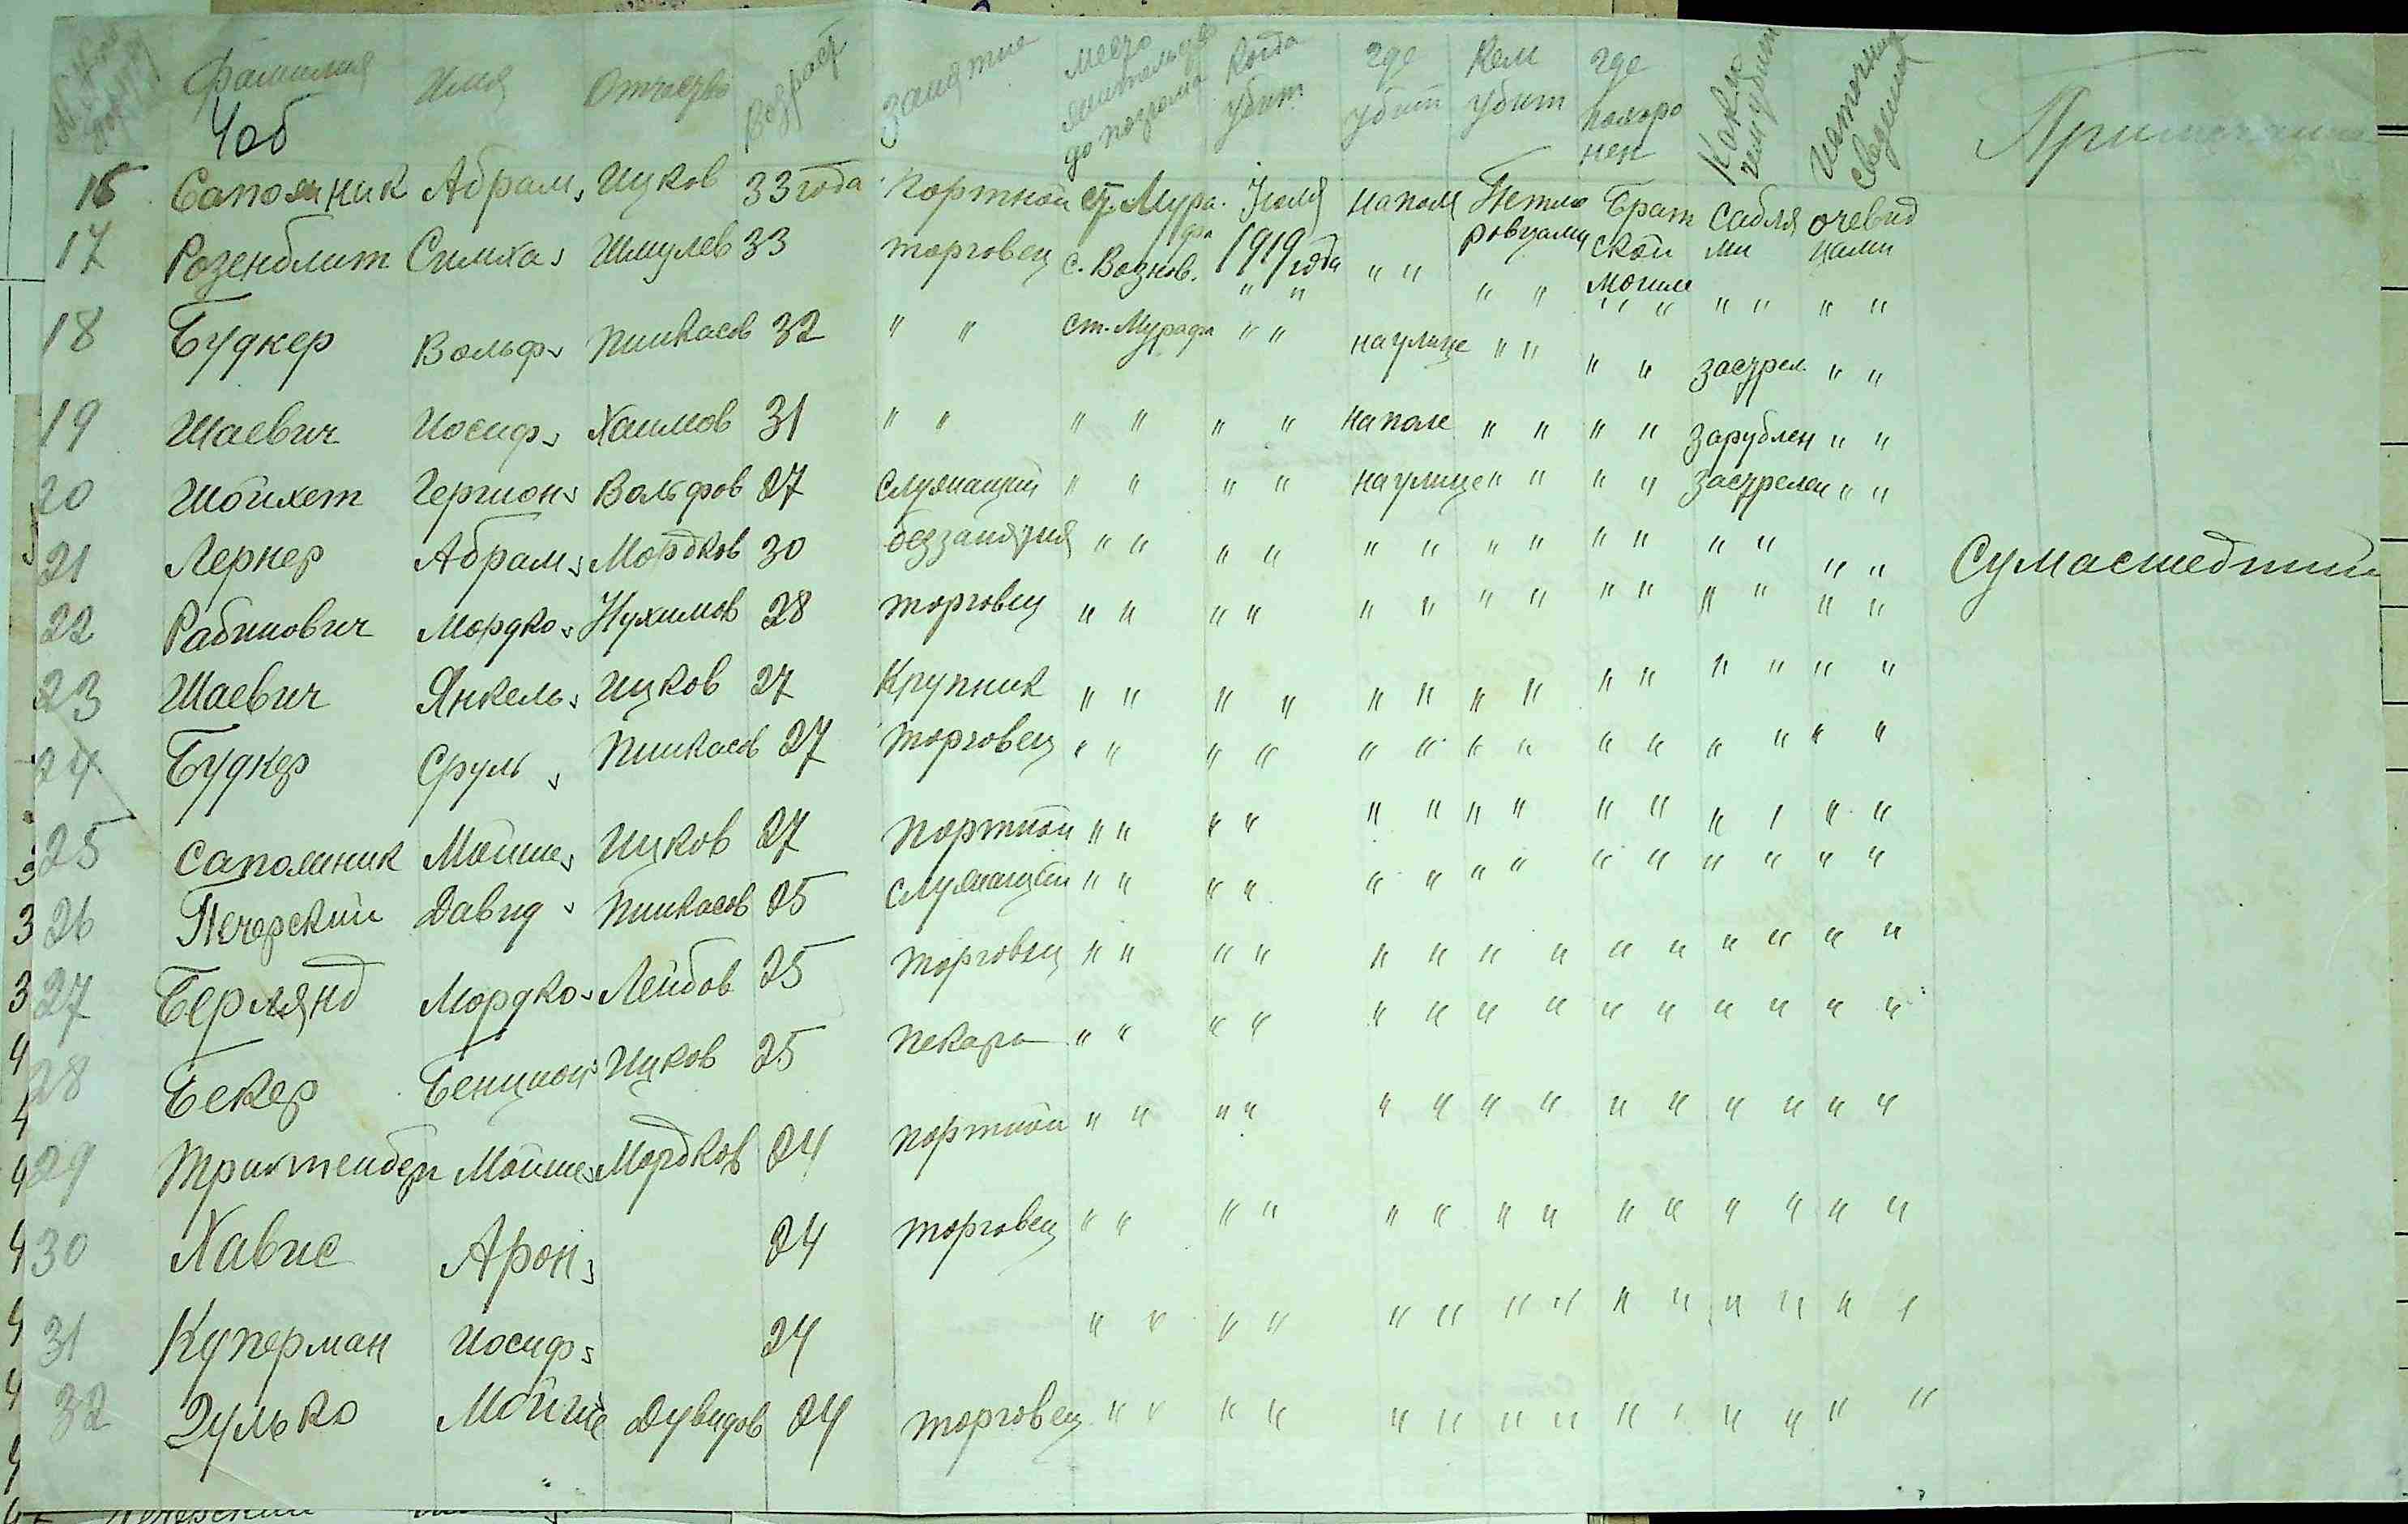 Фамилия Имя Отчество возраст Занятие место жительства до погрома когда убит где убит Кем убит где похоро нен Каким убит источник сведения Примечание
Чоб
16 Сапожник Абрам Ицков 33 года Портной ст. Мура- Июля на поле Петлю Брат Сабля очевид
фа ровцами ской ми цами
17 Розенблит Симха Шмулев 33 торговец с. Вознов. 1919 года " " " " могиле " " " "
18 Будкер Вольф Пинкасов 32 " " ст. Мурафа " " на улице " " " " застрел. " "
19 Шаевич Иосиф Хаимов 31 " " " " " " на поле " " " " Зарублен " "
20 Шойхет Гершон Вольфов 27 служащий " " " " на улице " " " " Застрелен " "
21 Лернер Абрам Мордков 30 без занятия " " " " " " " " " " " " " " Сумасшедший
22 Рабинович Мордко Нухимов 28 торговец " " " " " " " " " " " " " "
23 Шаевич Янкель Ицков 27 Крупник " " " " " " " " " " " " " "
24 Будкер Сруль Пинкасов 27 торговец " " " " " " " " " " " " " "
25 Сапожник Мойше Ицков 27 Портной " " " " " " " " " " " " " "
26 Печерский Давид Пинкасов 25 служащий " " " " " " " " " " " " " "
27 Берлянд Мордко Лейбов 25 торговец " " " " " " " " " " " " " "
28 Бекер Бенцион Ицков 25 пекарь " " " " " " " " " " " " " "
29 Трахтенберг Мойше Мордков 24 портной " " " " " " " " " " " " " "
30 Хавис Арон 24 торговец " " " " " " " " " " " " " "
31 Куперман Иосиф 24 " " " " " " " " " " " " " "
32 Зулько Мойше Дувидов 24 торговец " " " " " " " " " " " " " "